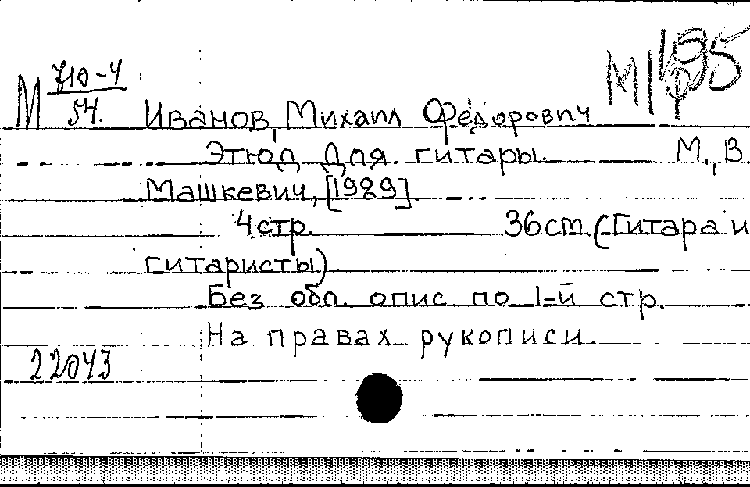 М 710-4
54.
Иванов, Михаил Федорович
Этюд для гитары. М., В.
Машкевич, [1929].
4 стр. 36 cm. (Гитара и
гитаристы)
Без обл. опис по 1-й стр.
На правах рукописи.
22043